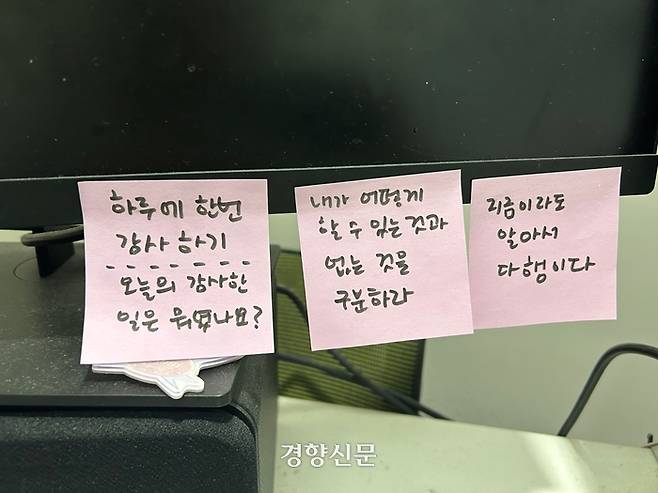 하루에 한번
감사하기
오늘의 감사한
일은 뭐였나요?
내가 어떻게
할 수 있는 것과
없는 것을
구분하라
리금이라도
알아서
다행이다
경향신문